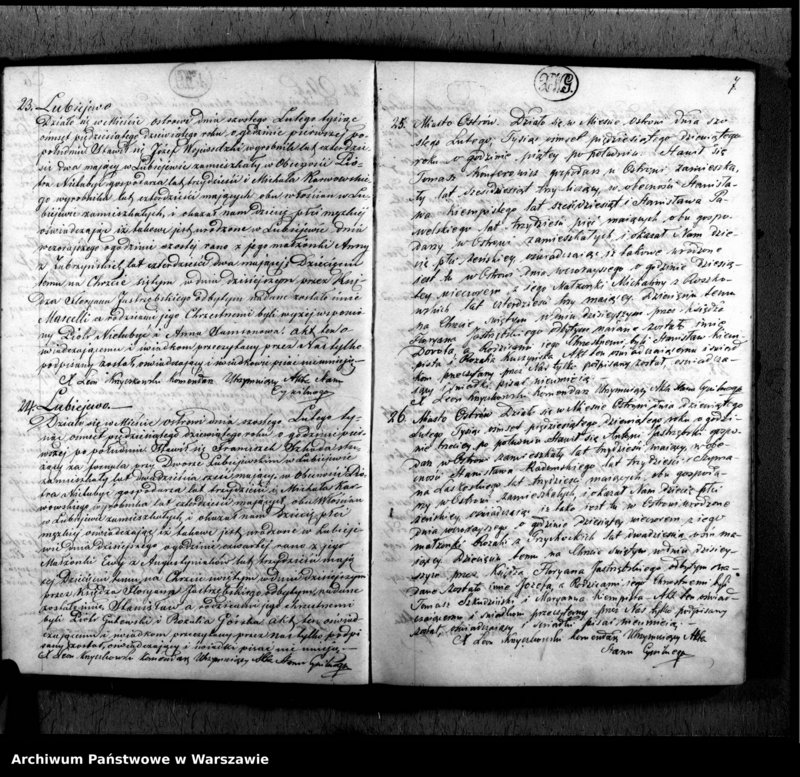 23. Lubiejewo
Działo się w Mieście Ostrowi dnia szostego Lutego tysiąc
ośmset pięćdziesiątego dziewiątego roku, o godzinie pierwszej po
południu Stawił się Józef wyrobnik lat czterdzie-
ści dwa mający w Lubiejewie zamieszkały w Obecności Pio-
tra Nielubyc gospodarza lat trzydzieści i Michała Karwowskie-
go wyrobnika lat czterdzieści mających, obu włościan w Lu-
biejewie zamieszkałych, i okazał nam dziecię płci męzkiej
oświadczając iż takowe jest urodzone w Lubiejewie dnia
wczorajszego o godzinie szostej rano z jego małżonki Anny
z lat czterdzieści dwa mającej; Dziecięciu
temu na Chrzcie świętym w dniu dzisiejszym przez Księ-
dza Floryana Jastrzębskiego odbytym nadane zostało imie
Marcelli a rodzicami jego Chrzestnemi byli wyżej wspomnio-
ny Piotr Nielubyc i Anna Akt ten o-
świadczającemu i świadkom przeczytany przez Nas tylko
podpisany został, oświadczający i świadkowie pisać nieumieją.
X Leon Knyszkowski Komendarz Utrzymujący Akta Stanu
Cywilnego
24. Lubiejewo.
Działo się w Mieście Ostrowi dnia szostego Lutego ty-
siąc ośmset pięćdziesiątego dziewiątego roku o godzinie pier-
wszej po południu Stawił się Franciszek
przy Dworze Lubiejewskim w Lubiejewie
zamieszkały lat dwadzieścia mający, w Obecności Pio-
tra Nielubyc gospodarza lat trzydzieści i Michała Kar-
wowskiego wyrobnika lat czterdzieści mających, obu Włościan
w Lubiejewie zamieszkałych i okazał nam dziecię płci
męzkiej oświadczając iż takowe jest urodzone w Lubieje-
wie dnia dzisiejszego o godzinie czwartej rano z jego
Małżonki Ewy z lat trzydzieści mają-
cej Dziecięciu temu na Chrzcie świętym w dniu dzisiejszym
przez Księdza Floryana Jastrzębskiego odbytym, nadane
zostało imie Stanisław a rodzicami jego chrzestnemi
byli Piotr Gutowski i Rozalia Górska Akt ten oświad-
czającemu i świadkom przeczytany przez nas tylko podpi-
sany został, oświadczający i świadki pisać nie umieją.
X Leon Knyszkowski Komendarz Utrzymujący Akta Stanu Cywilnego
7
25. Miasto Ostrów. Działo się w Mieście Ostrowi dnia szo-
stego Lutego Tysiąc ośmset pięćdziesiątego dziewiątego
roku o godzinie piątej po południu. Stawił się
Tomasz gospodarz w Ostrowi zamieszka-
ły lat sześćdziesiąt trzy liczący, w obecności Stanisła-
wa lat sześćdziesiąt i Stanisława Pa-
welskiego lat trzydzieści pięć mających, obu gospo-
darzy w Ostrowi zamieszkałych i okazał Nam dzie-
cię płci żeńskiej oświadczając iż takowe urodzone
jest tu w Ostrowi dnia wczorajszego o godzinie dziesią-
tej wieczorem z jego Małżonki Michaliny z
lat czterdzieści trzy mającej. Dziecięciu temu
na Chrzcie świętym w dniu dzisiejszym przez Księdza
Floryana Jastrzębskiego odbytym nadane zostało imie
Dorota, a Rodzicami jego Chrzestnemi byli Stanisław
i Rozalia Akt ten oświadczającemu i świad-
kom przeczytany przez Nas tylko podpisany został, oświadcza-
jący i świadki pisać nieumieją.
X Leon Knyszkowski Komendarz Utrzymujący Akta Stanu Cywilnego
26. Miasto Ostrów Działo się w Mieście Ostrowi dnia dziewiątego
Lutego Tysiąc ośmset pięćdziesiątego dziewiątego roku o godzi-
nie trzeciej po południu Stawił się Antoni Jastrzębski gospo-
darz w Ostrowi zamieszkały lat trzydzieści mający, w obe-
cności Stanisława Radomskiego lat trzydzieści i
lat trzydzieści mających, obu gospoda-
rzy w Ostrowi zamieszkałych, i okazał Nam Dziecię płci
żeńskiej oświadczając iż jest tu w Ostrowi urodzone
dnia wczorajszego o godzinie dziesiątej wieczorem z jego
małżonki Rozalii z lat dwadzieścia ma-
jącej. Dziecięciu temu na Chrzcie Świętym w dniu dzisiej-
szym przez Księdza Floryana Jastrzębskiego odbytym na-
dane zostało imie Józefa, a Rodzicami jego Chrzestnemi byli
Tomasz i Maryanna Akt ten oświad-
czającemu i świadkom przeczytany przez Nas tylko podpisany
został, oświadczający i świadki pisać nieumieją.
X Leon Knyszkowski Komendarz Utrzymujący Akta
Stanu Cywilnego
Archiwum Państwowe w Warszawie